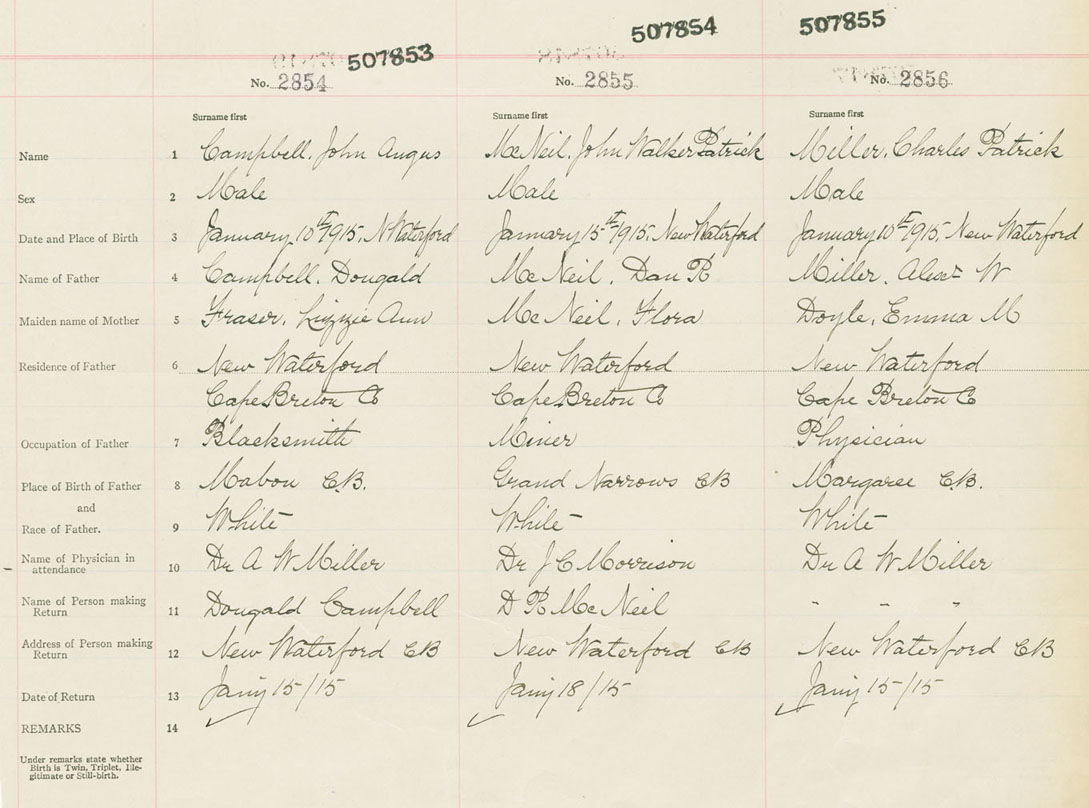 507853 507854 507855
No. 2854 No. 2855 No. 2856
Surname first Surname first Surname first
Name 1 Campbell, John Angus McNeil, John Walker Patrick Miller, Charles Patrick
Sex 2 Male Male Male
Date and Place of Birth 3 January 10th 1915, N Waterford January 15th 1915, New Waterford January 10th 1915, New Waterford
Name of Father 4 Campbell, Dougald McNeil, Dan R Miller, Alexr W
Maiden name of Mother 5 Fraser, Lizzie Ann McNeil, Flora Doyle, Emma M
Residence of Father 6 New Waterford New Waterford New Waterford
Cape Breton Co Cape Breton Co Cape Breton Co
Occupation of Father 7 Blacksmith Miner Physician
Place of Birth of Father 8 Mabou C.B. Grand Narrows CB Margaree C.B.
and
Race of Father. 9 White White White
Name of Physician in
attendance 10 Dr A W Miller Dr J C Morrison Dr A W Miller
Name of Person making
Return 11 Dougald Campbell D R McNeil " " "
Address of Person making
Return 12 New Waterford CB New Waterford CB New Waterford CB
Date of Return 13 Jany 15/15 Jany 18/15 Jany 15/15
REMARKS 14
Under remarks state whether
Birth is Twin, Triplet, Ille-
gitimate or Still-birth.